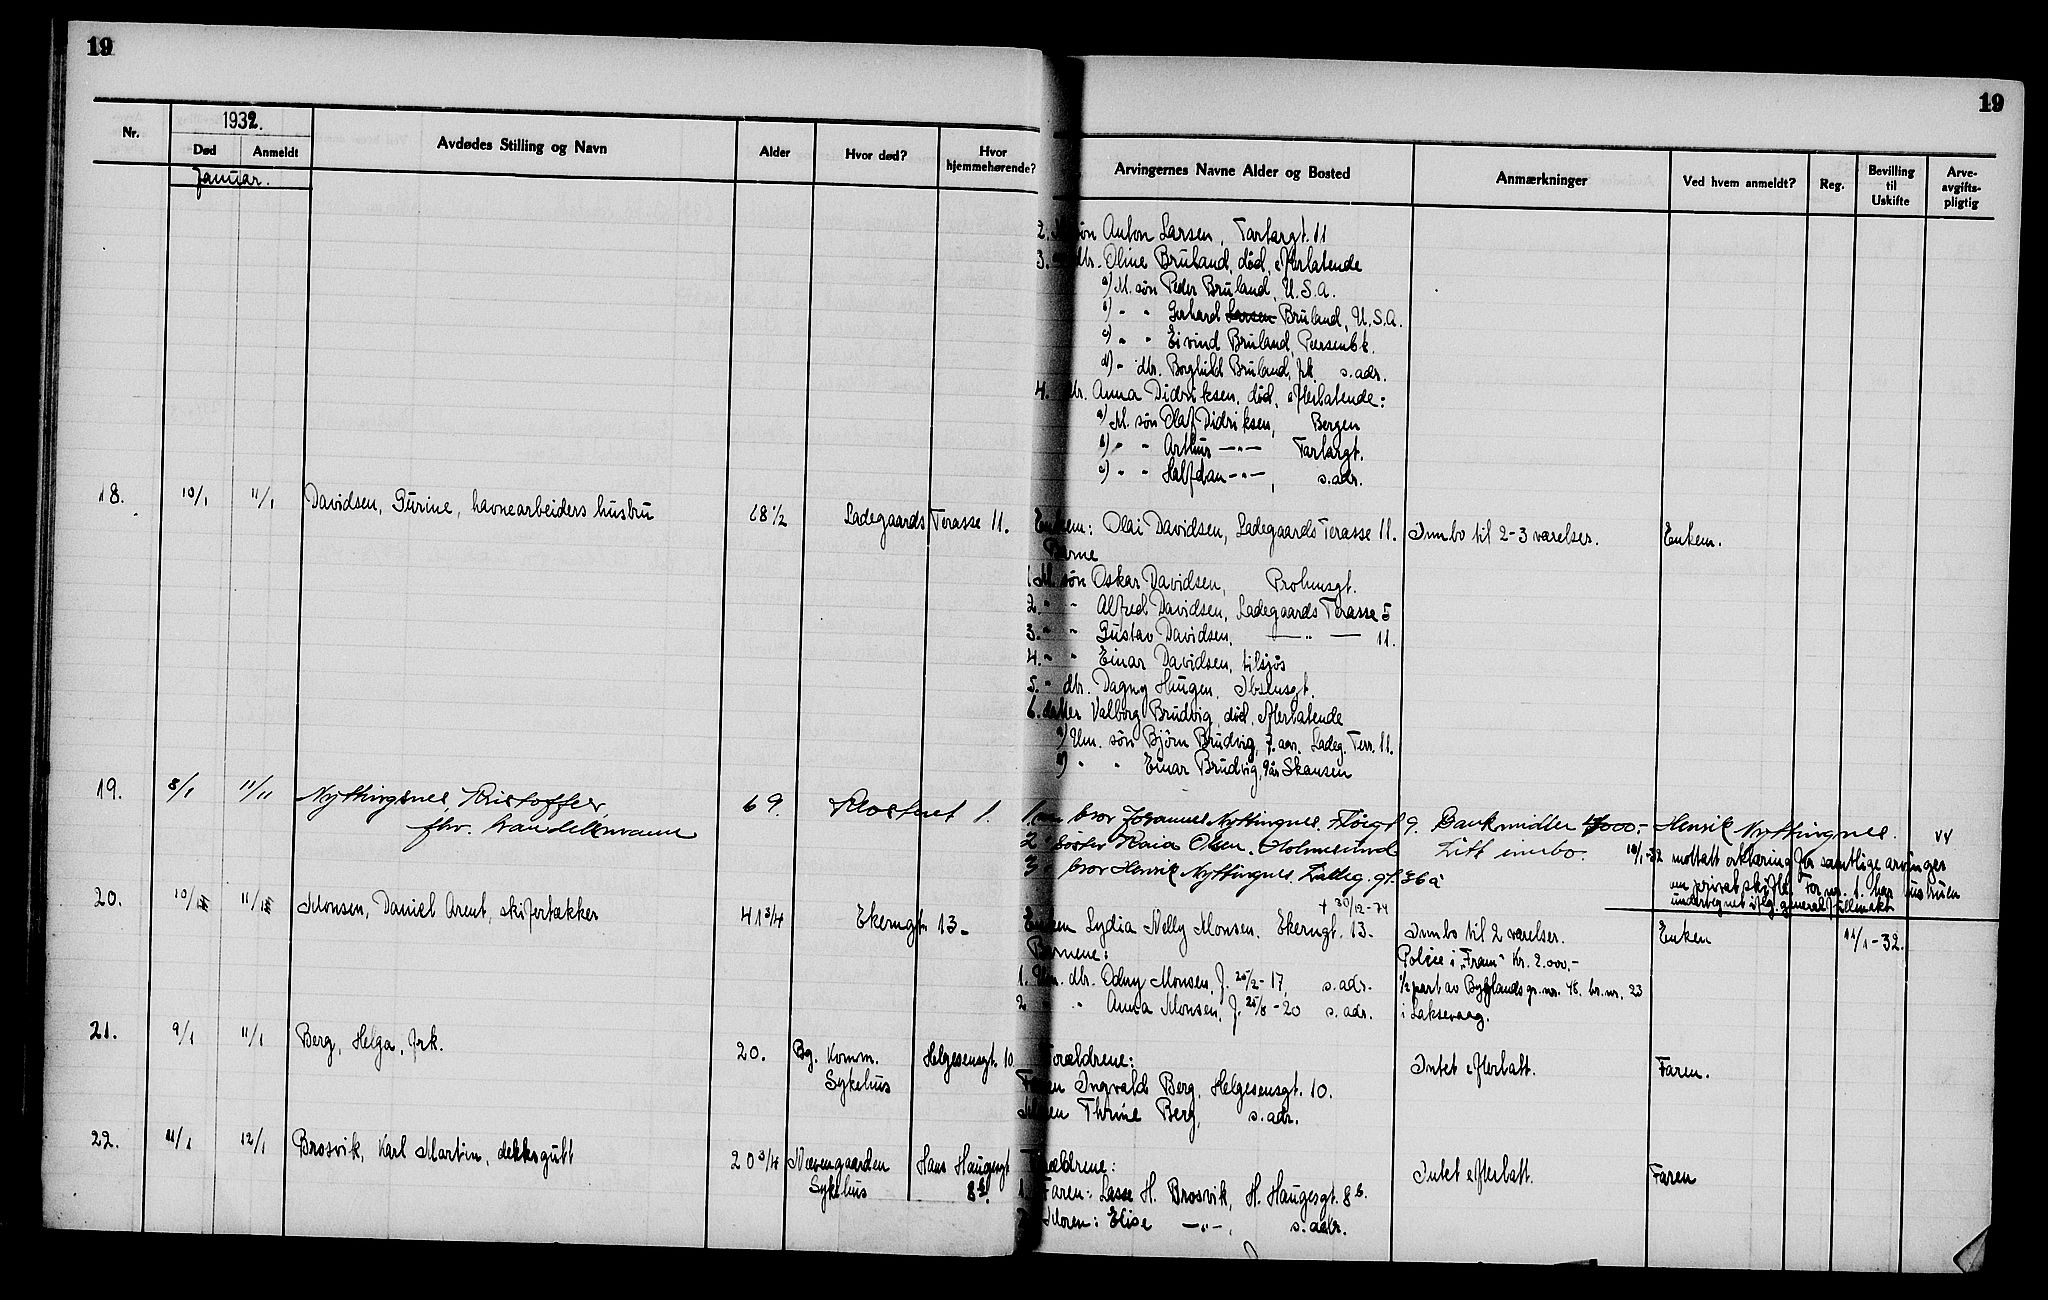 19
19
Nr.
1932.
Død
Anmeldt
Avdødes Stilling og Navn
Alder
Hvor død?
Hvor
hjemmehørende?
Arvingernes Navne Alder og Bosted
Anmærkninger
Ved hvem anmeldt?
Reg.
Bevilling
til
Uskifte
Arve-
avgifts-
pligtig
Januar.
2. M. søn Anton Larsen, Tartargt. 11
3. " dtr. Oline Bruland, død, efterlatende
a) M. søn Peder Bruland, U.S.A.
b) " " Gerhard Larsen Bruland, U.S.A.
c) " " Eivind Bruland, Peersenbk.
d) " dtr. Borghild Bruland, frk s. adr.
4. dtr. Anna Didriksen, død, efterlatende:
a) M. søn Olaf Didriksen, Bergen
b) " " Arthur —"— Tartargt.
c) " " Halfdan —"—, s. adr.
18. 10/1 11/1 Davidsen, Gurine, havnearbeiders hustru 68 1/2 Ladegaards Terasse 11. Enkem: Olai Davidsen, Ladegaards Terasse 11. Innbo til 2-3 værelser. Enkem.
Barne
1. M. søn Oskar Davidsen, Prahmsgt.
2. " " Alfred Davidsen, Ladegaards Terasse 5
3. " " Gustav Davidsen, —"— 11.
4. " " Einar Davidsen, tilsjøs
5. " dtr. Dagny Haugen, Ibsensgt.
6. datter Valborg Brudvig, død, efterlatende
a) Um. søn Bjørn Brudvig, 7 aar. Ladeg. Terr. 11.
b) " " Einar Brudvig, 9 år Skansen
19. 8/1 11/11 Nyttingsnes, Kristoffer, 69. Klosteret 1. 1 bror Johannes Nyttingnes, Fløigt 9. Bankmidler 000.- Henrik Nyttingnes. vv
fhv. handelsmann
2 " søster Kaia Olsen, Holmesund Litt innbo.
3 " bror Henrik Nyttingnes. Ladeg. gt. 36 a
18/1-32 mottatt erklæring for samtlige arvinger
om privat skifte. For nr. 1. har hustruen
undertegnet iflg. generalfullmakt
20. 10/1 11/1 Monsen, Daniel Arent, skifertækker 41 3/4 Ekerngt. 13. Enken Lydia Nelly Monsen. Ekerngt. 13. Innbo til 2 værelser. Enken 11/1-32.
+ 30/12-74
Barnene:
Police i "Fram" Kr. 2.000.-
1. Um. dtr. Odny Monsen, f. 20/2-17, s. adr. 1/2 part av Bygglands gr. nr. 48. br. nr. 23
2 " " Anna Monsen, f. 25/8-20 s. adr. i Laksevaag.
21. 9/1 11/1 Berg, Helga, frk. 20. Bg. Komm. Helgesensgt. 10 Forældrene: Intet efterlatt. Faren.
Sykehus
Faren Ingvald Berg, Helgesensgt. 10.
Moren Thrine Berg, s. adr.
22. 11/1 12/1 Brosvik, Karl Martin, dekksgutt 20 3/4 Nevengaarden Hans Haugesgt Forældrene: Intet efterlatt. Faren
Sykehus 8 b.
1. Faren: Lasse H. Brosvik, H. Haugesgt. 8 b.
2. Moren: Elise —"—, s. adr.